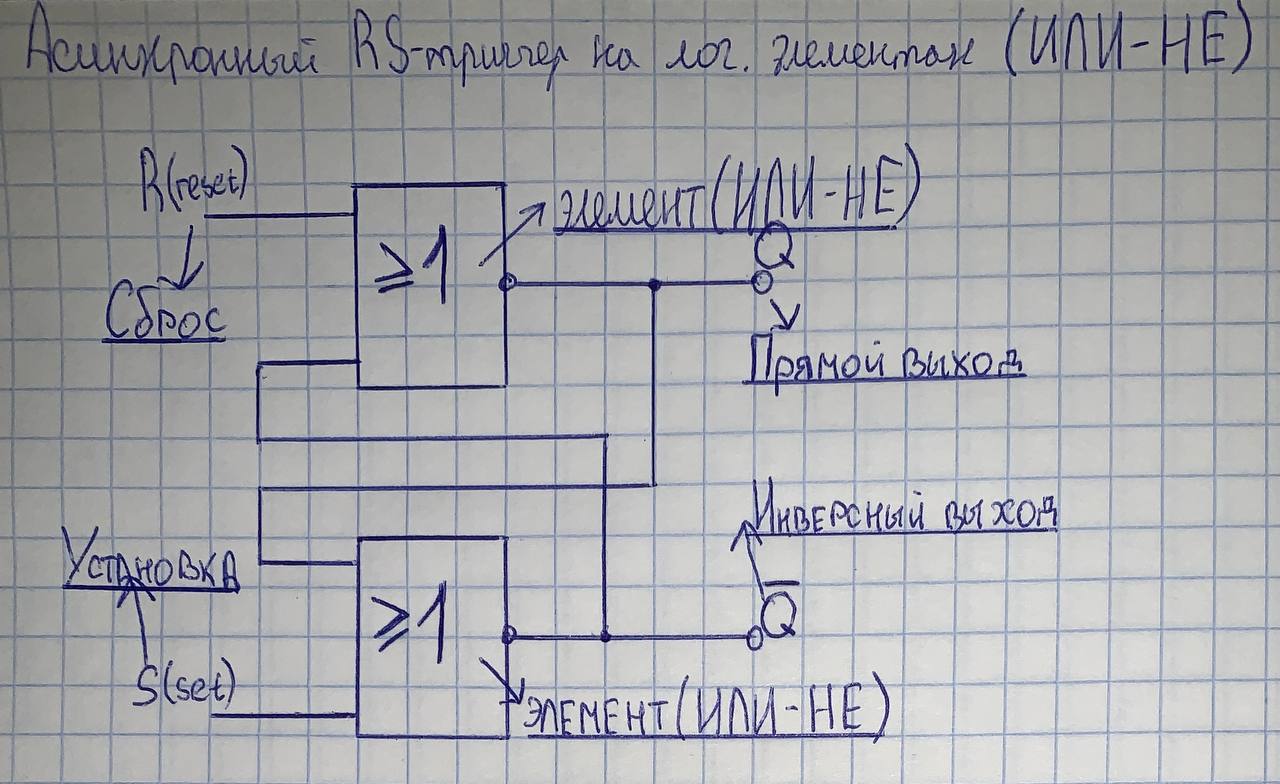 Асинхронный RS-триггер на лог. элементах (ИЛИ-НЕ)
R(reset)
Сброс
≥1
элемент(ИЛИ-НЕ)
Q
Прямой выход
Инверсный выход
Q̅
Установка
S(set)
≥1
элемент(ИЛИ-НЕ)